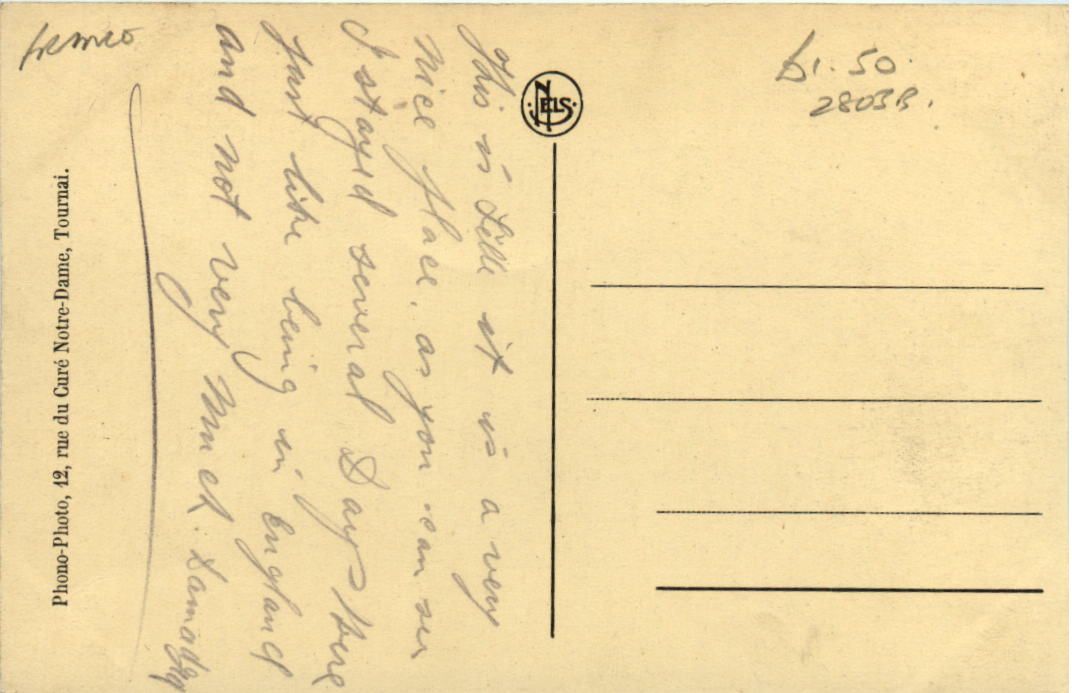 This is Lille it is a very
nice place. as you can see
I stayed several Days Here
Just like being in England
and not very much Damaged
NELS
£1.50
2803B.
Phono-Photo, 12, rue du Curé Notre-Dame, Tournai.